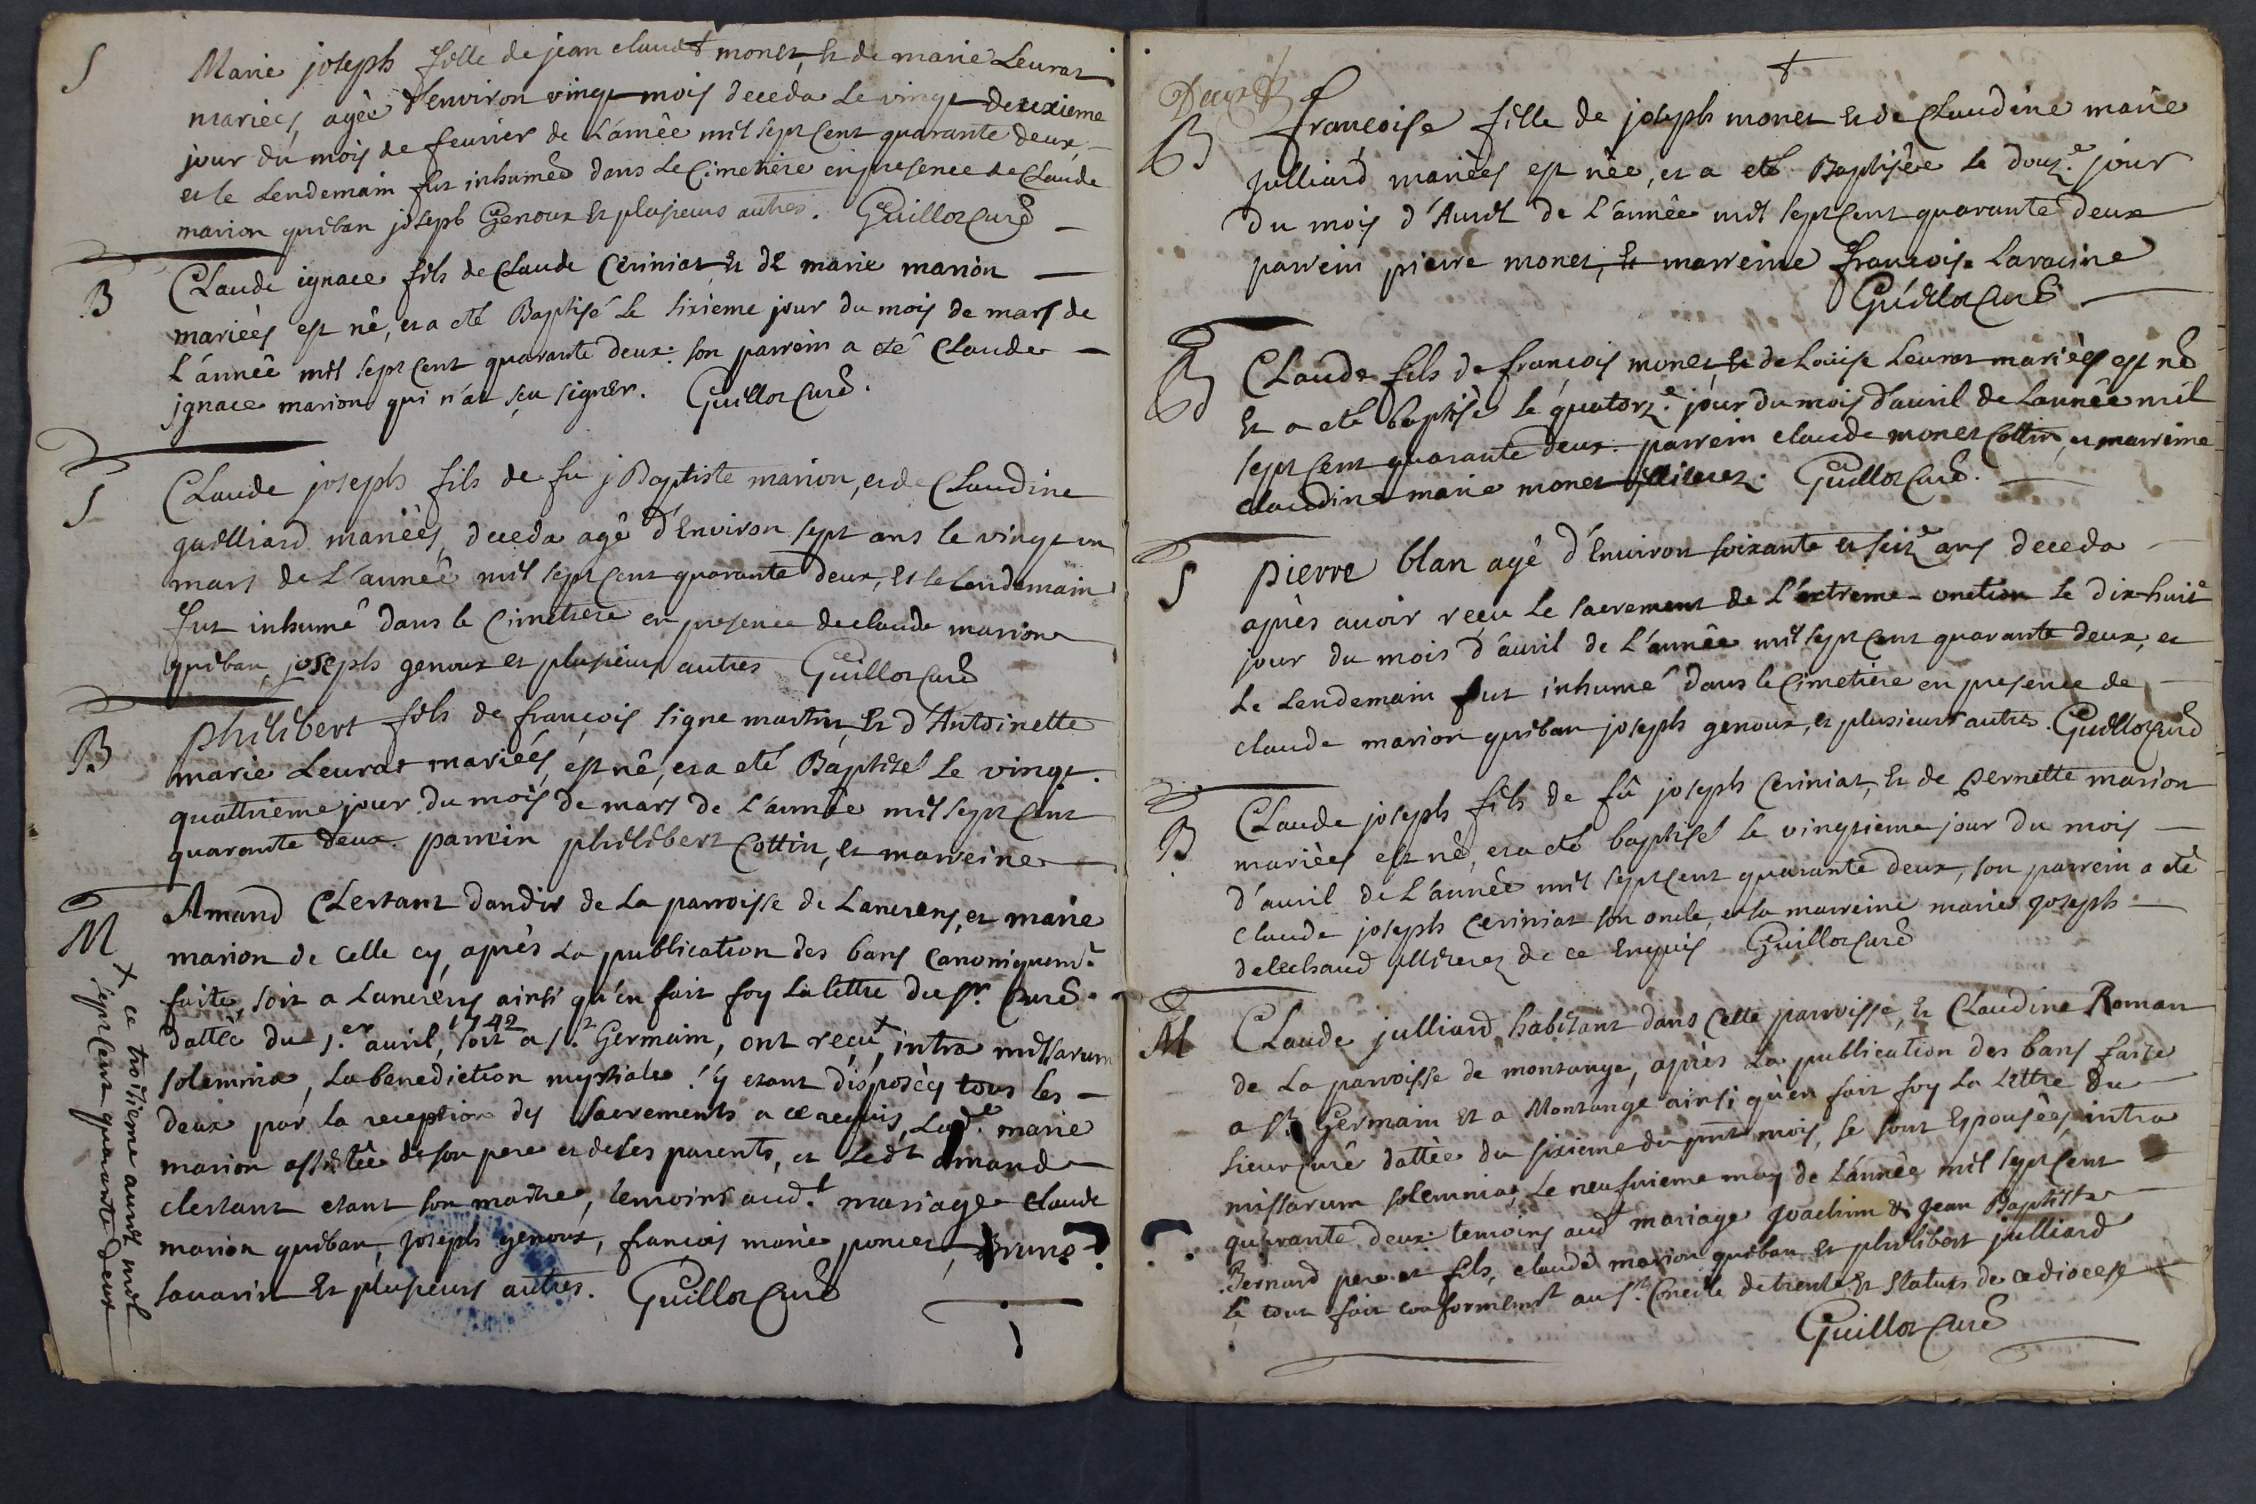 S
Marie joseph fille de jean claude monet, et de marie Leurat
mariées, agée d'environ vingt mois deceda Le vingt deuxieme
jour du mois de feurier de L'année mil sept Cent quarante deux,
et le Lendemain fut inhumée dans Le Cimetiere en presence de Claude
marion quiban joseph Genoux et plusieurs autres. Guillot Curé
B
Claude ignace fils de Claude Ceriniat et de marie marion
mariées est né, et a eté Baptisé Le sixieme jour du mois de mars de
L'année mil sept Cent quarante deux. son parrein a eté Claude
ignace marion qui n'a sçu signer. Guillot Curé.
S
Claude joseph fils de fu j Baptiste marion, et de Claudine
guilliard mariées, deceda agé d'Environ sept ans le vingt un
mars de L'année mil sept Cent quarante deux, et le Lendemain
fut inhumé dans le Cimetiere en presence de claude marion
quiban, joseph genoux et plusieurs autres Guillot Curé
B
philibert fils de françois signe martin, et d'Antoinette
marie Leurat mariées, est né, et a eté Baptisé Le vingt
quattrieme jour du mois de mars de L'année mil sept Cent
quarante deux. parrein philibert Cottin, et marreine
M
Amand Clertant dandir de La parroisse de Lancrens, et marie
marion de Celle cy, après La publication des bans Canoniquemt.
faite, soit a Lancrens ainsi qu'en fait foy La lettre du sr. Curé
dattée du 1.er auril, 1742 soit a st. Germain, ont reçu x, intra missarum
solemnia, La benediction nuptiale s'y etant disposées tous les
deux par la reception des sacrements a ce requis, Lade. marie
marion assistée de son pere et de ses parents, et Ledt amand
clertant etant son maitre, temoins audt. mariage claude
marion quiban, joseph genoux, françois marie poncet, Brune
sauarin et plusieurs autres. Guillot Curé
x ce troisieme auril mil
sept Cent quarante deux
Deux
B
françoise fille de joseph monet et de Claudine marie
Julliard mariées est née, et a eté Baptisée le douz.e jour
du mois d'Auril de L'année mil sept Cent quarante deux
parrein pierre monet, et marreine françoise Laracine
Guillot Curé
B
Claude fils de françois monet, et de Louise Leurat mariées est né
et a eté baptisé le quatorz.e jour du mois d'auril de L'année mil
sept Cent quarante deux. parrein claude monet Cottin, et marreine
claudine marie monet illiterez. Guillot Curé.
S
pierre blan agé d'Environ soixante et seize ans deceda
après auoir reçu Le sacrement de L'extreme-onction le dix-huite
jour du mois d'auril de L'année mil sept Cent quarante deux, et
Le Lendemain fut inhumé dans le Cimetiere en presence de
claude marion quiban joseph genoux, et plusieurs autres. Guillot Curé
B
Claude joseph fils de fû joseph Ceriniat, et de pernette marion
mariées est né, et a eté baptisé le vingtieme jour du mois
d'auril de L'année mil sept Cent quarante deux, son parrein a eté
Claude joseph Ceriniat son oncle, et sa marreine marie joseph
delechaud illiterez de ce Enquis Guillot Curé
M
Claude julliard habitant dans Cette parroisse, et Claudine Roman
de La parroisse de montange, après La publication des bans faite
a st. Germain et a Montange ainsi qu'en fait foy La Lettre du
sieur Curé dattée du sixieme du pnt mois, se sont Epousées, intra
missarum solemnia, Le neufuieme may de L'année mil sept Cent
quarante deux temoins audt mariage Joachim & Jean Baptiste
Bernard pere et fils, claude marion quiban et philibert julliard
le tout fait conformemt au st. Concile de trente et statuts de ce diocese
Guillot Curé